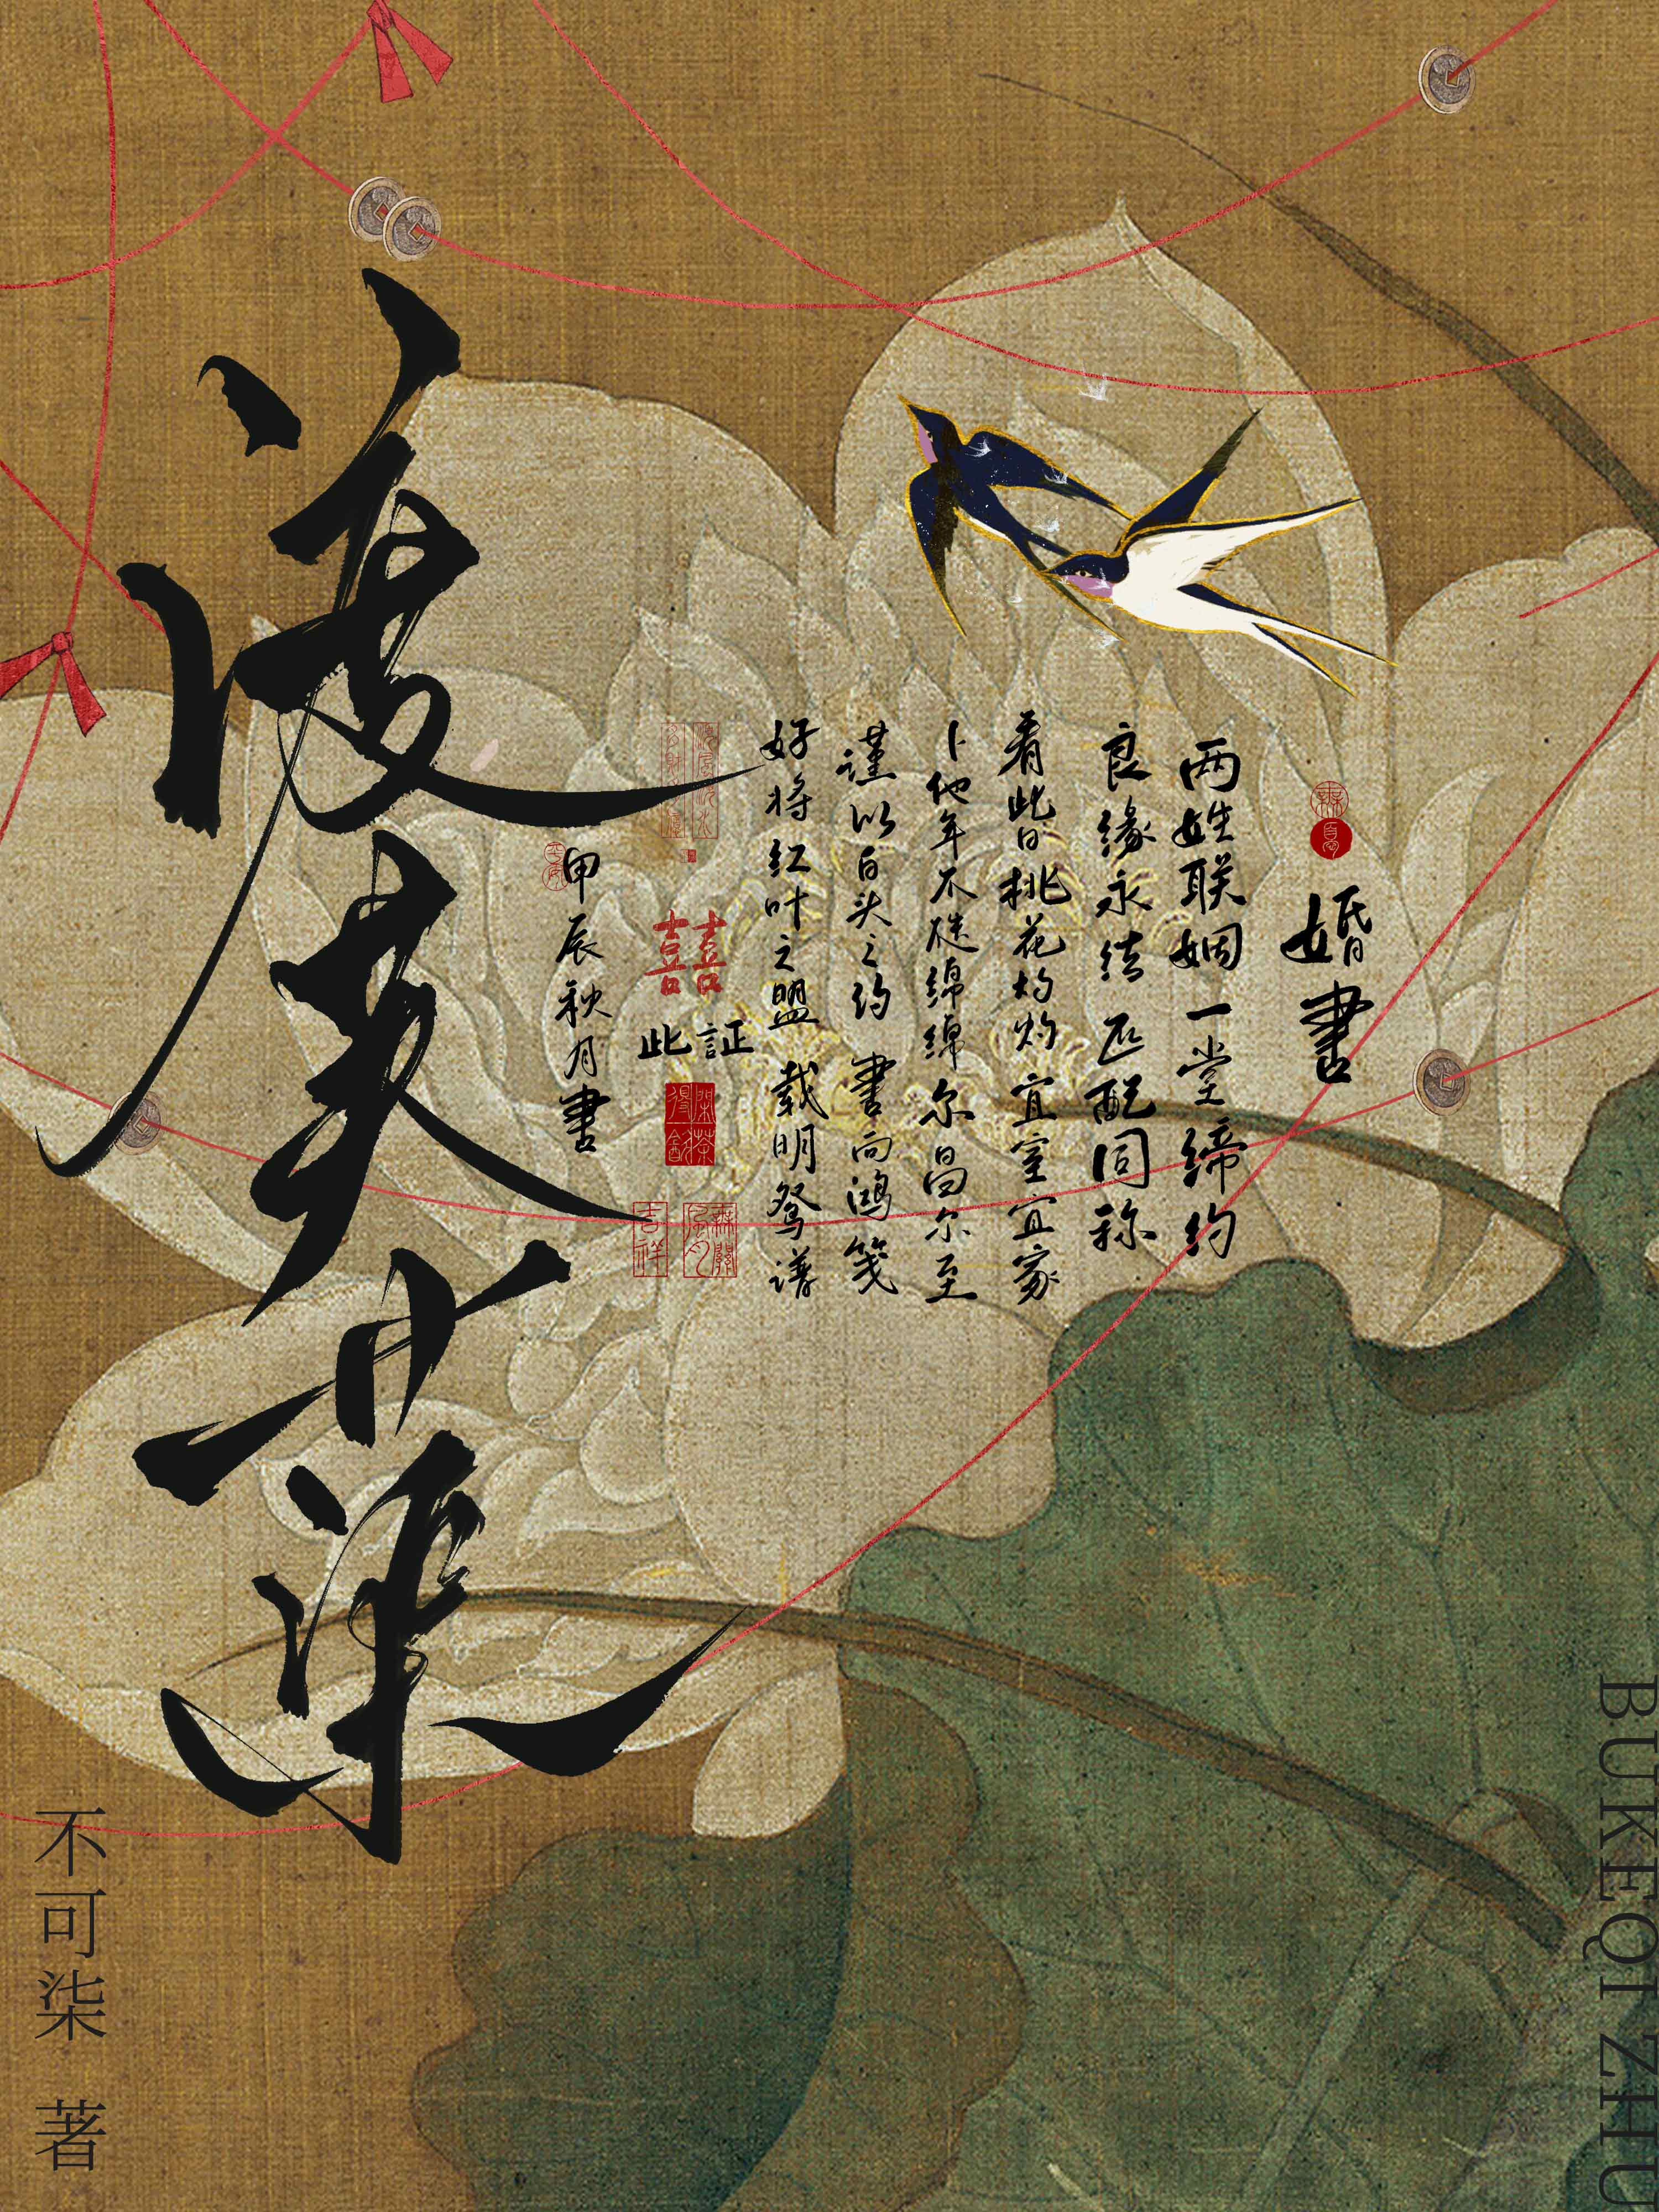 婚書
两姓联姻 一堂缔约
良缘永结 匹配同称
看此日桃花灼灼 宜室宜家
卜他年瓜瓞绵绵 尔昌尔至
谨以白头之约 書向鸿笺
好将红叶之盟 载明鸳谱
囍
此証
吉祥
甲辰秋月書
不可柒 著
BUKEQI ZHU